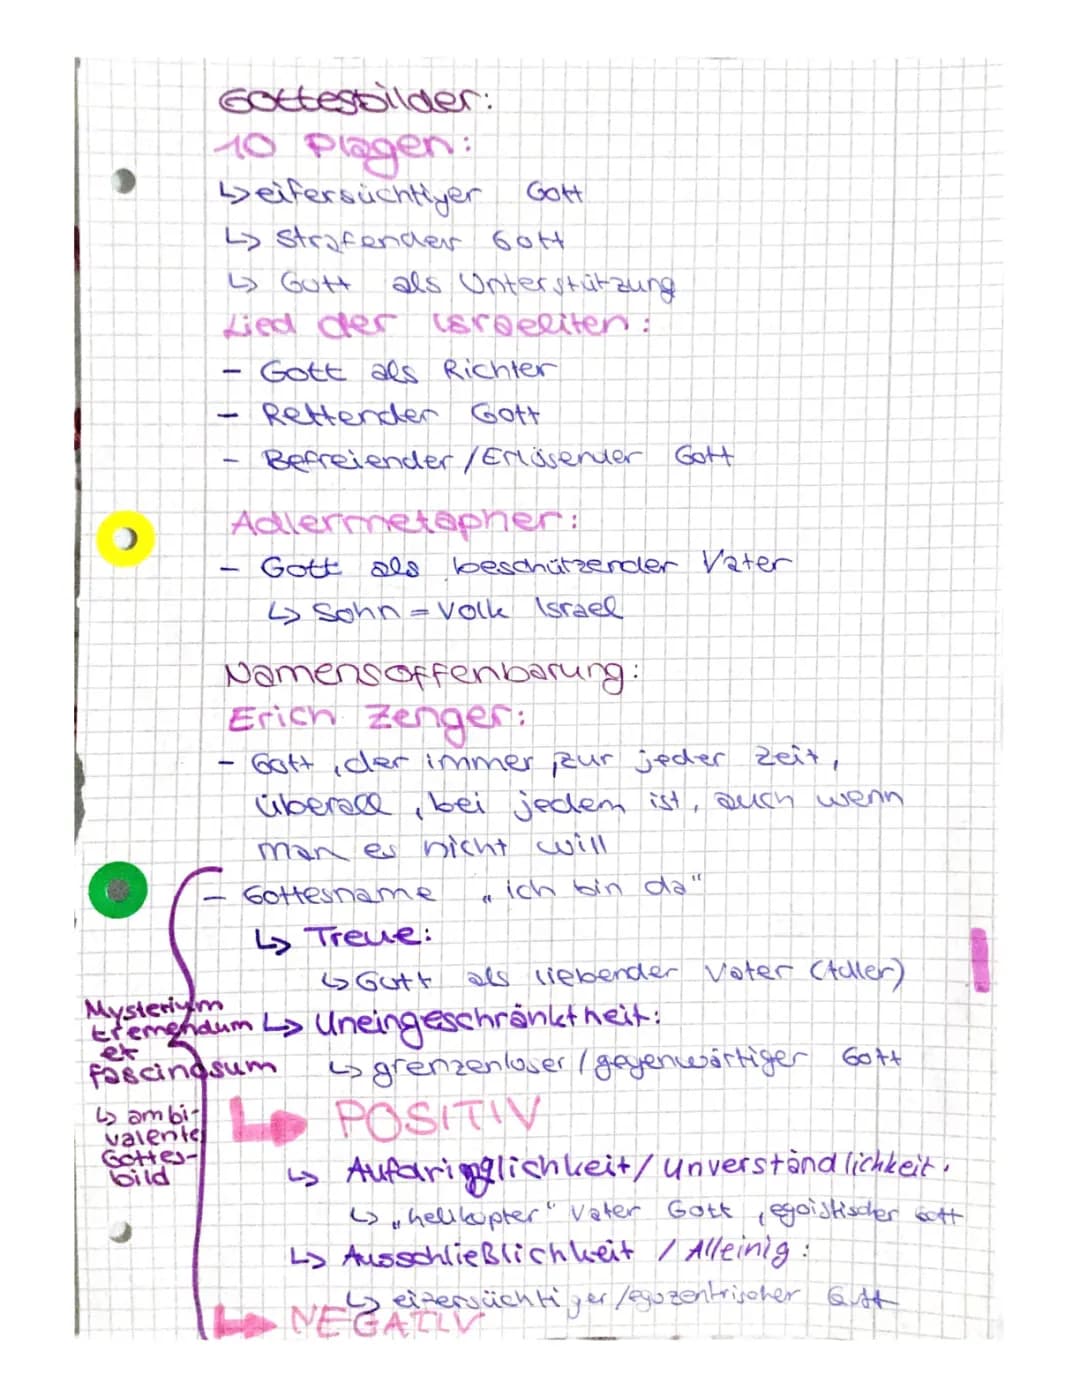 Gottesbilder:
10 Plagen:
↳ eifersüchtiger Gott
↳ strafender Gott
↳ Gott als Unterstützung
Lied der Israeliten:
- Gott als Richter
- Rettender Gott
- Befreiender/Erlösender Gott
Adlermetapher:
- Gott als beschützender Vater
↳ Sohn = Volk Israel
Namensoffenbarung:
Erich Zenger:
- Gott, der immer, zur jeder Zeit,
überall, bei jedem ist, auch wenn
man es nicht will
- Gottesname „ich bin da“
↳ Treue:
↳ Gott als liebender Vater (Adler)
↳ Uneingeschränktheit:
↳ grenzenloser/gegenwärtiger Gott
↳ POSITIV
↳ Aufdringlichkeit/Unverständlichkeit:
↳ „helikopter“ Vater Gott, egoistischer Gott
↳ Ausschließlichkeit / Alleinig:
↳ eifersüchtiger/egozentrischer Gott
↳ NEGATIV
Mysterium
tremendum
et
fascinosum
↳ ambi-
valentes
Gottes-
bild